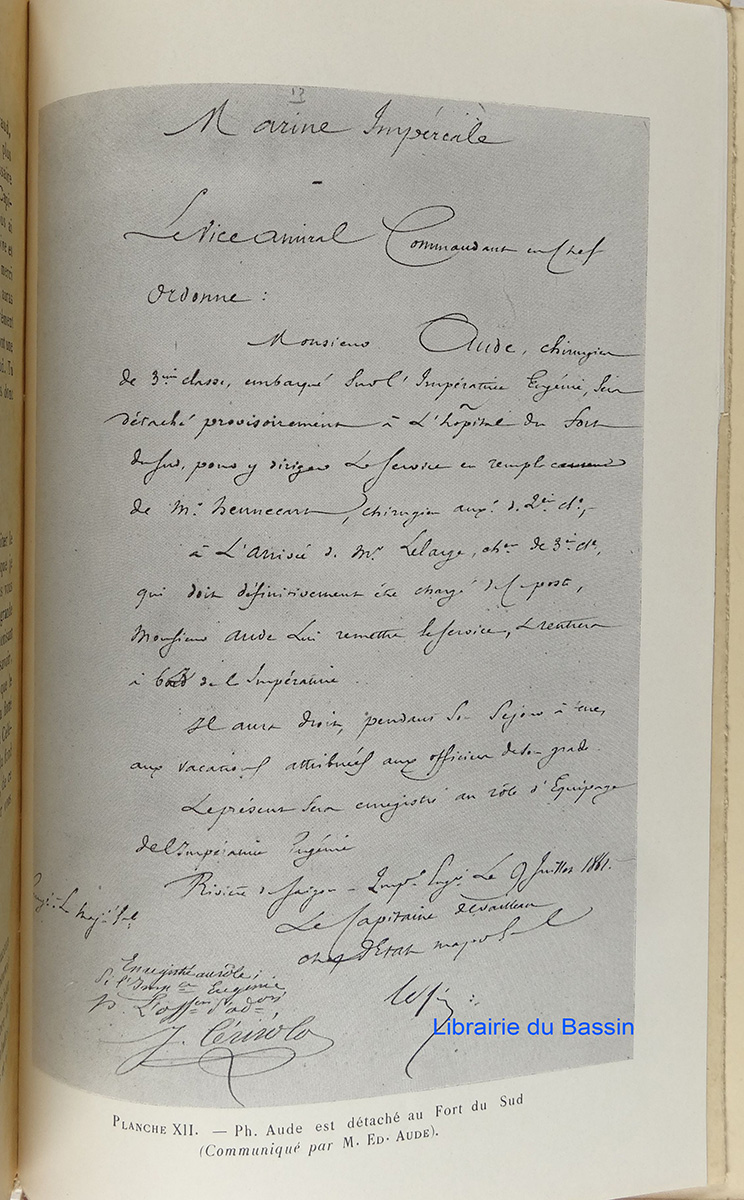 13
Marine Impériale
Le Vice amiral Commandant en Chef
Ordonne :
Monsieur Aude, chirurgien
de 3ème classe, embarqué sur l'Impératrice Eugénie, sera
détaché provisoirement à l'hôpital du Fort
du Sud, pour y diriger le service en remplacement
de Mr. hennecart, chirurgien auxre. de 2ème cle,
à l'arrivée de Mr. Lelarge, chen de 3e cle,
qui doit définitivement être chargé de ce poste,
Monsieur Aude lui remettra le service, & rentrera
à bord de l'Impératrice.
Il aura droit, pendant son séjour à terre,
aux vacations attribuées aux officiers de son grade.
Le présent sera enregistré au rôle d'Equipage
de l'Impératrice Eugénie
Rivière de Saigon - Impce Eugie Le 9 Juillet 1861.
Le Capitaine de vaisseau
chef d'Etat major
Enregistré au rôle
de l'Impce Eugénie
J. Cérisola
Librairie du Bassin
PLANCHE XII. — Ph. Aude est détaché au Fort du Sud
(Communiqué par M. ED. AUDE).